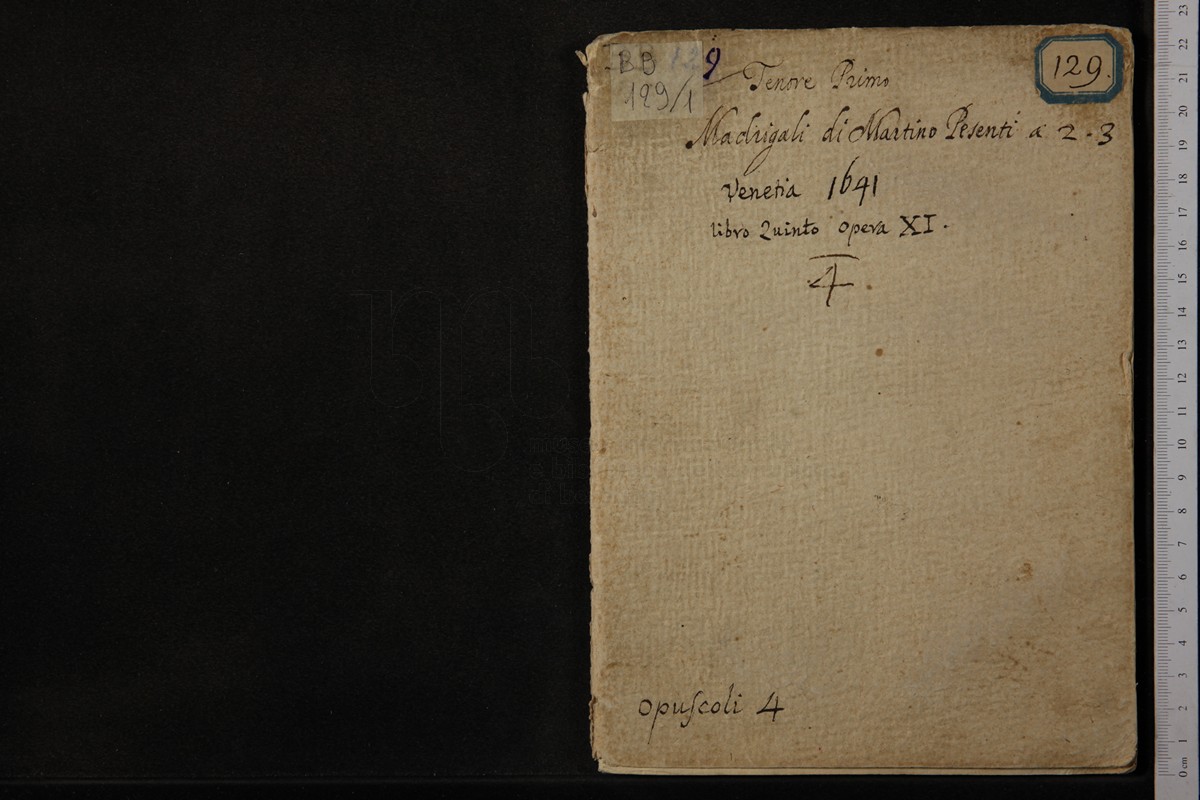 BB 129
129/1
129.
Tenore Primo
Madrigali di Martino Pesenti a 2 - 3
Venetia 1641
libro Quinto opera XI.
4
opuscoli 4
23
22
21
20
19
18
17
16
15
14
13
12
11
10
9
8
7
6
5
4
3
2
1
0 cm